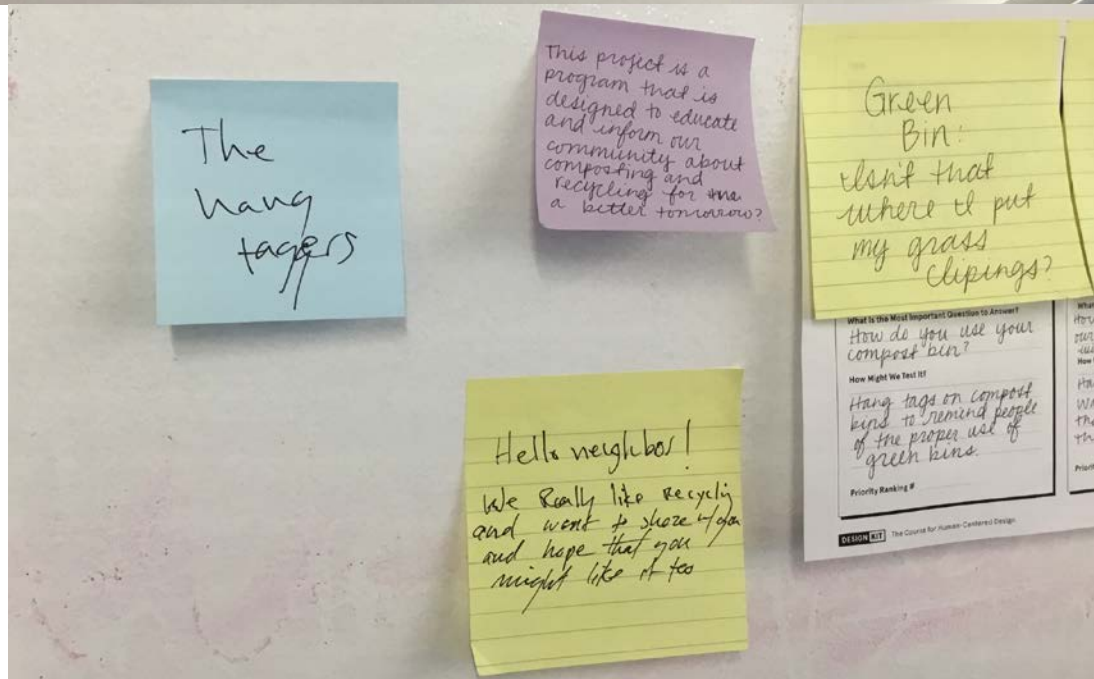 The
hang
taggers
This project is a
program that is
designed to educate
and inform our
community about
composting and
recycling for
a better tomorrow?
Green
Bin:
isn't that
where I put
my grass
clipings?
What Is the Most Important Question to Answer?
How do you use your
compost bin?
How Might We Test It?
Hang tags on compost
bins to remind people
of the proper use of
green bins.
Priority Ranking #
DESIGN KIT The Course for Human-Centered Design
Hello neighbor!
We Really like recyclin
and want to share w/ you
and hope that you
might like it too